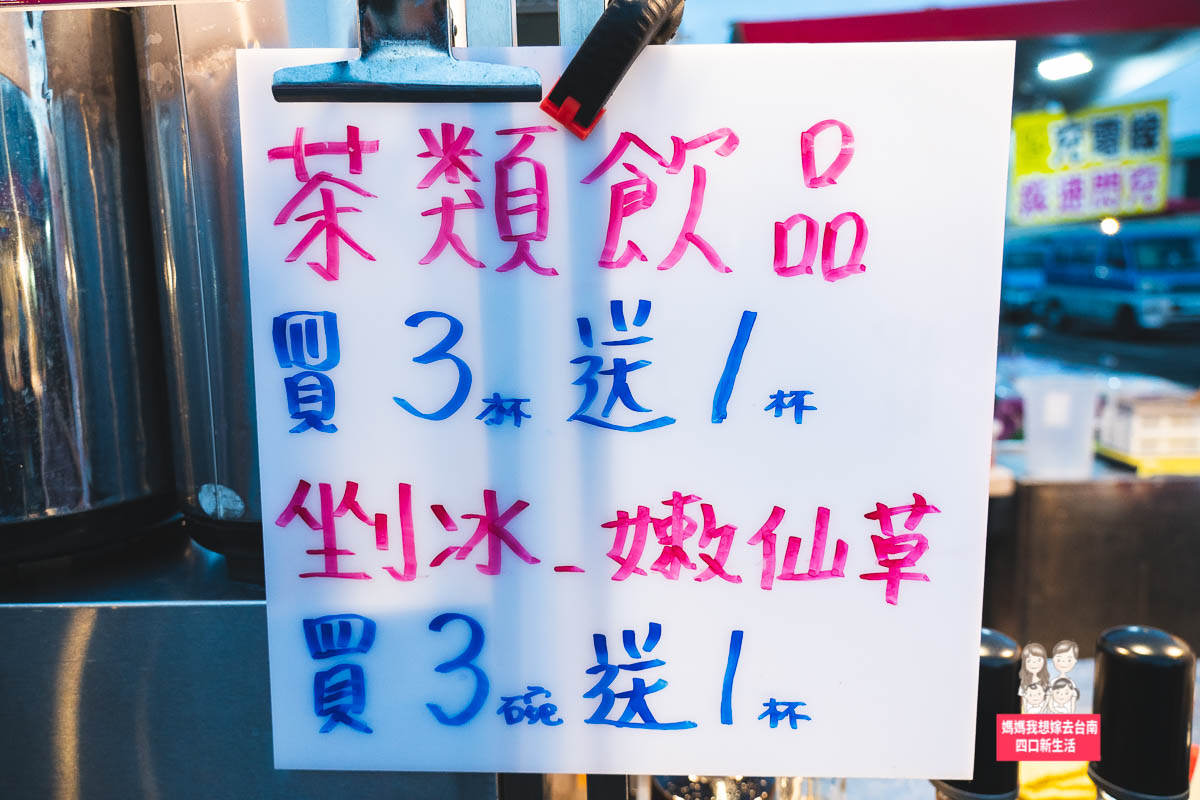 茶類飲品
買3杯送1杯
剉冰-嫩仙草
買3碗送1杯
媽媽我想嫁去台南
四口新生活